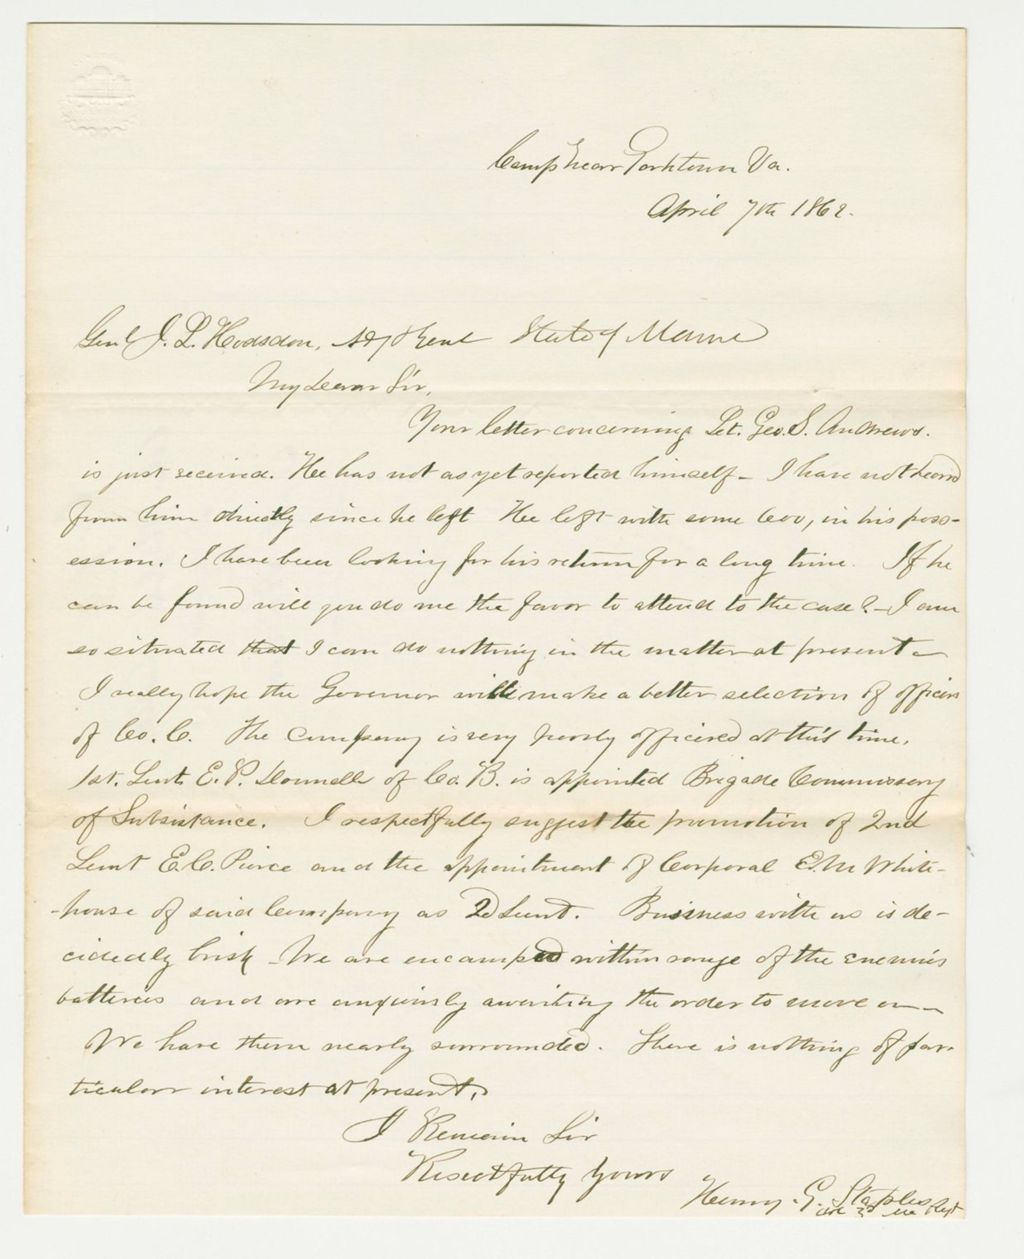 Camp near Yorktown Va.
April 7th 1862.
Genl J. L. Hodsdon, Adjt Genl State of Maine
My Dear Sir,
Your letter concerning Lt. Geo. S. Andrews.
is just received. He has not as yet reported himself – I have not heard
from him directly since he left He left with some 600, in his poss-
ession. I have been looking for his return for a long time. If he
can be found will you do me the favor to attend to the case? – I am
so situated that I can do nothing in the matter at present –
I really hope the Governor will make a better selection of officers
of Co. C. The Company is very poorly officered at this time.
1st. Lieut. E. P. Donnell of Co. B. is appointed Brigade Commissary
of Subsistance. I respectfully suggest the promotion of 2nd
Lieut E. C. Pierce and the appointment of Corporal E. M White-
-house of said Company as 2d Lieut. Business with us is de-
cidedly brisk – We are encamped within range of the enemies
batteries and are anxiously awaiting the order to move on –
We have them nearly surrounded. There is nothing of par-
ticular interest at present.
I Remain Sir
Respectfully Yours
Henry G. Staples
3d Me Regt